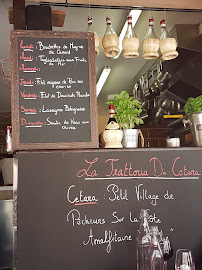 Lundi : Brochettes de Magret
de Canard
Mardi : Tagliatelles aux Fruits
de Mer
Mercredi :
Jeudi : Filet mignon de Porc
Vendredi : Filet de Daurade
Samedi : Lasagnes Bolognaise
Dimanche : Sauté de Veau aux
Olives
La Trattoria Di Cetara
Cetara : Petit Village de
Pêcheurs Sur la Côte
Amalfitaine